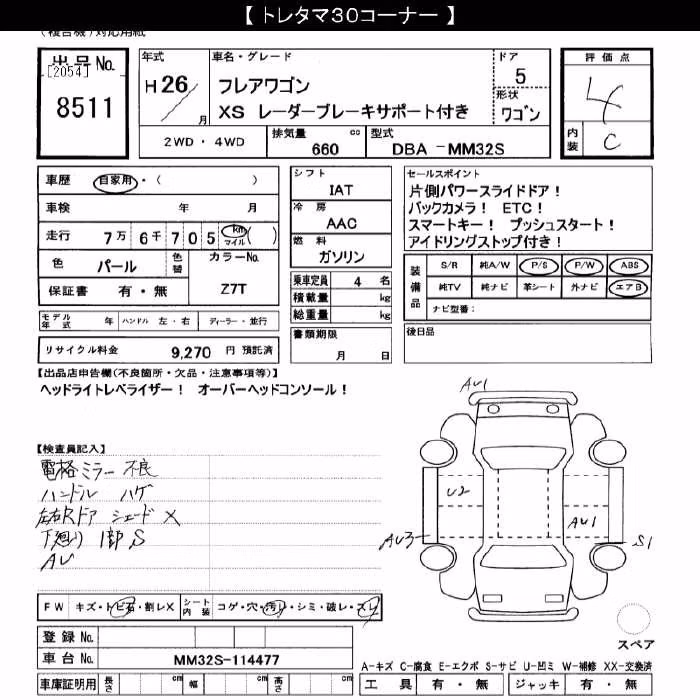 【 トレタマ30コーナー 】
(複合機)対応用紙
出品No.
[2054]
8511
年式
H 26 / 月
車名・グレード
フレアワゴン
XS レーダーブレーキサポート付き
ドア
5
形状
ワゴン
評価点
4
内装
C
2WD ・ 4WD
排気量 660 cc
型式 DBA -MM32S
車歴 自家用・( )
車検 年 月
走行 7万 6千 7 0 5 km マイル ( )
色 パール 色替 カラーNo. Z7T
保証書 有・無
モデル年式 年 ハンドル 左・右 ディーラー・並行
リサイクル料金 9,270 円 預託済
シフト
IAT
冷房
AAC
燃料
ガソリン
乗車定員 4 名
積載量 kg
総重量 kg
書類期限
月 日
セールスポイント
片側パワースライドドア!
バックカメラ! ETC!
スマートキー! プッシュスタート!
アイドリングストップ付き!
装備品
S/R 純A/W P/S P/W ABS
純TV 純ナビ 革シート 外ナビ エアB
ナビ型番:
後日品
【出品店申告欄(不良箇所・欠品・注意事項等)】
ヘッドライトレベライザー! オーバーヘッドコンソール!
【検査員記入】
電格ミラー 不良
ハンドル ハゲ
左右Rドア シェード X
下廻り 1部 S
AU
AU1
U2
AU1
AU3
S1
スペア
FW キズ・トビ石・割レX
シート内装 コゲ・穴・汚レ・シミ・破レ・スレ
登録 No.
車台 No. MM32S-114477
車庫証明用 長さ cm 幅 cm 高さ cm
A-キズ C-腐食 E-エクボ S-サビ U-凹ミ W-補修 XX-交換済
工具 有・無 ジャッキ 有・無